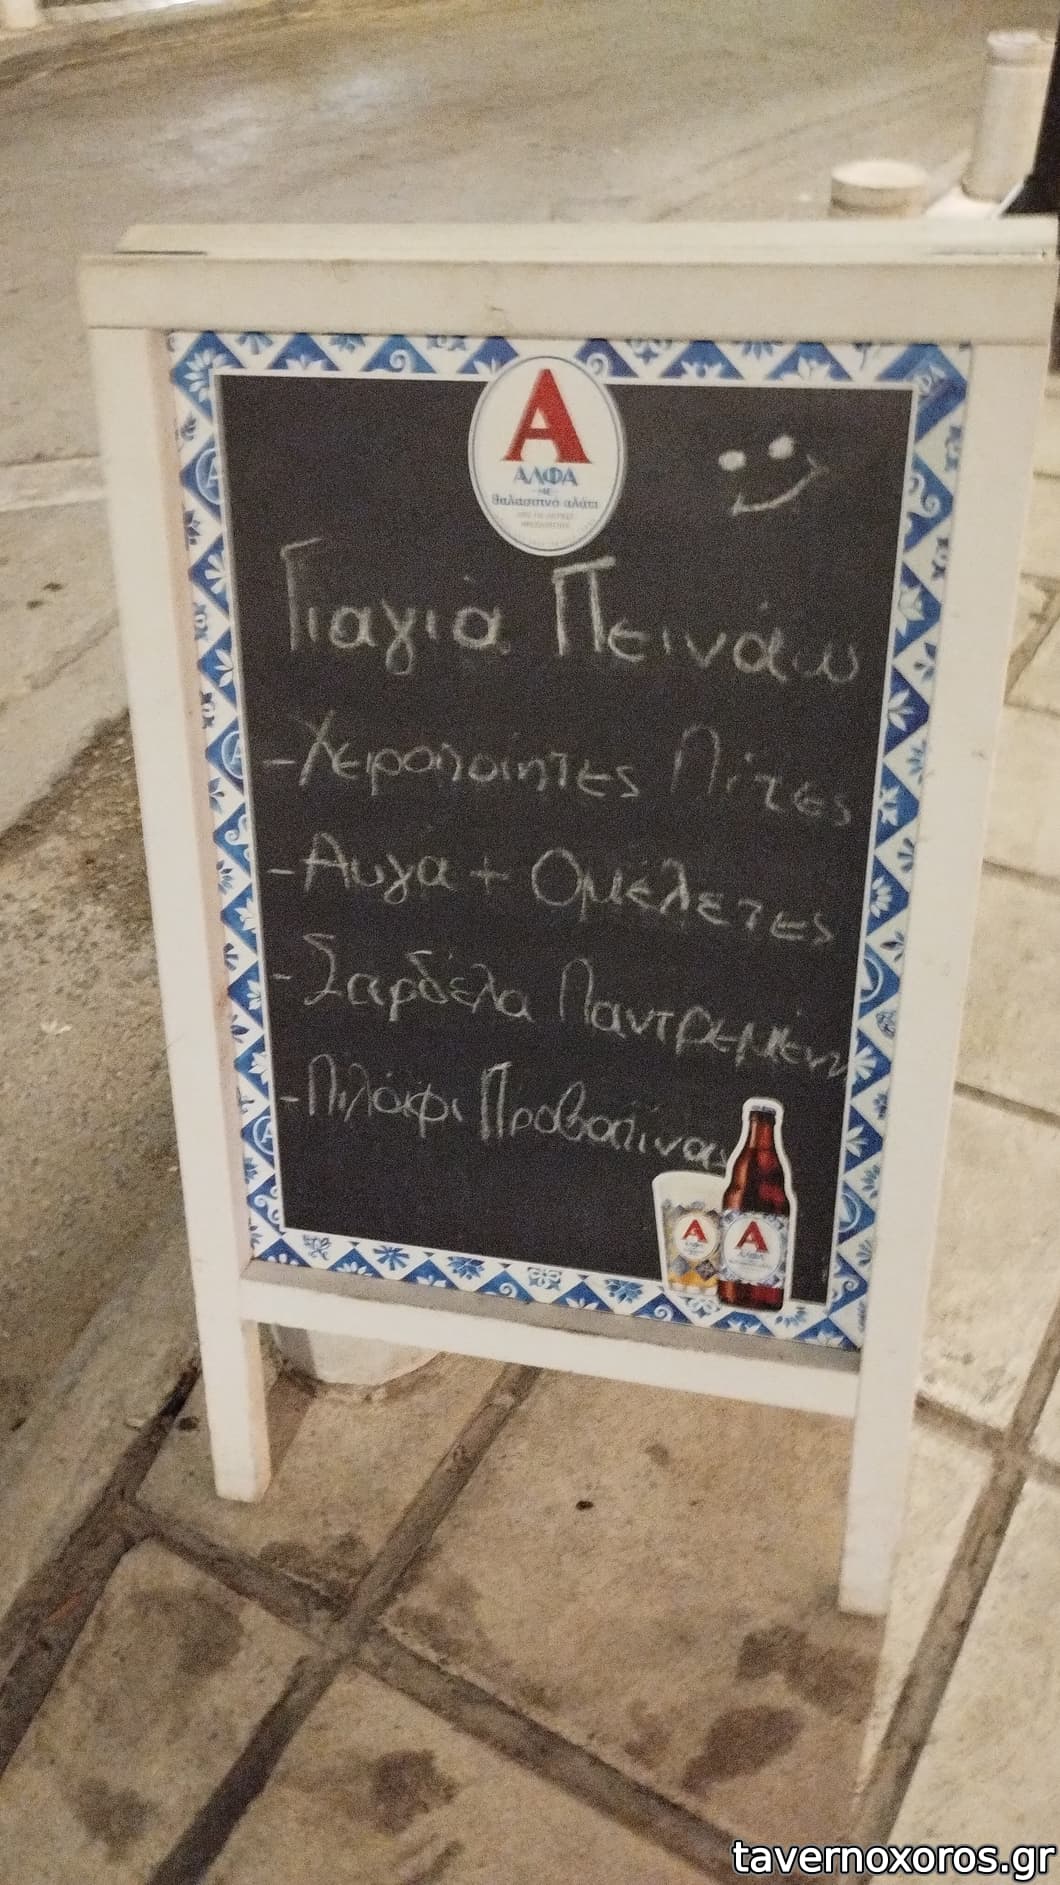 Α
ΑΛΦΑ
ΜΕ
θαλασσινό αλάτι
Γιαγιά Πεινάω
- Χειροποίητες Πίτες
- Αυγά + Ομελέτες
- Σαρδέλα Παντρεμένη
- Πιλάφι Προβατίνας
Α
Α
ΑΛΦΑ
tavernoxoros.gr